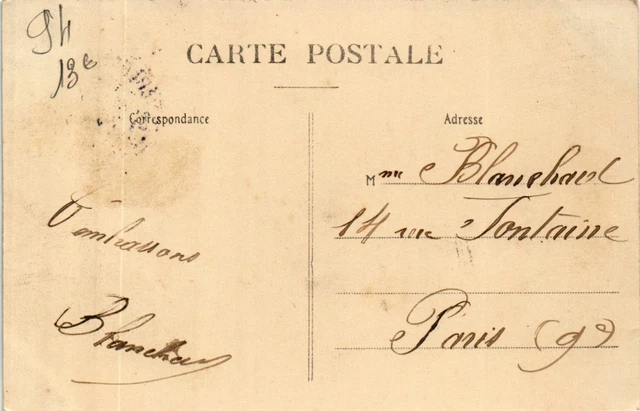 94
13e
CARTE POSTALE
Correspondance
Adresse
Mme Blanchard
14 rue Fontaine
Paris (9e
T'embrassons
Blanchard